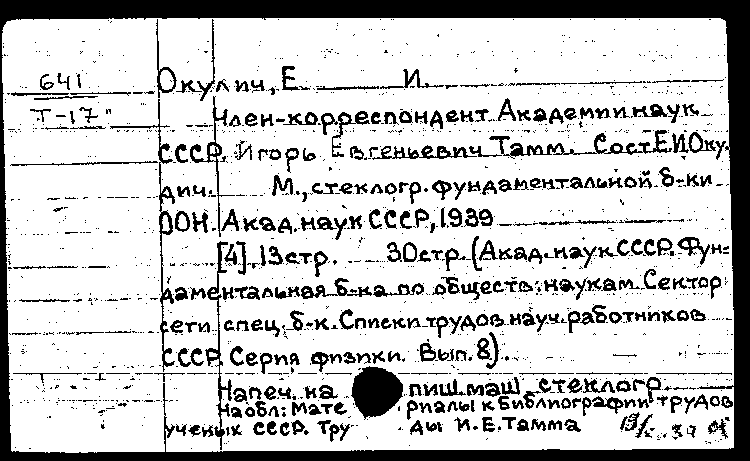 641
Т-17"
Окулич, Е И.
Член-корреспондент Академии наук
СССР. Игорь Евгеньевич Тамм. Сост Е.И Оку-
лич. М., стеклогр. фундаментальной б-ки
ООН. Акад. наук СССР, 1939
[4]. 13стр. 30стр. (Акад. наук СССР. Фун-
даментальная б-ка по обществ. наукам. Сектор
сети спец. б-к. Списки трудов науч. работников
СССР. Серия физики. Вып. 8).
Напеч. на пиш. маш. стеклогр.
На обл: Мате риалы к библиографии трудов
ученых СССР. Тру ды И. Е. Тамма